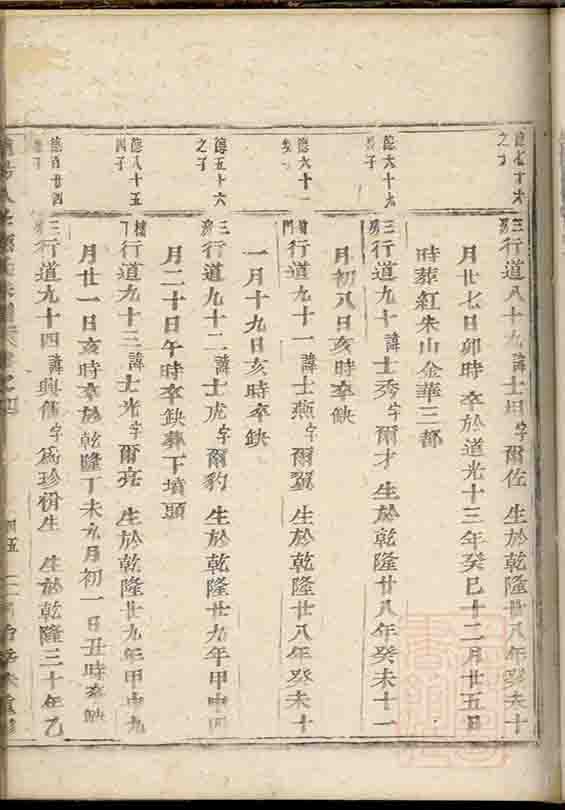 德七十六
之子
三房行道八十九諱士坦字爾佐 生於乾隆廿八年癸未十
月廿七日卯時 卒於道光十三年癸巳十二月廿五日
時葬紅朱山金華三都
德六十九
子
三房行道九十諱士秀字爾才 生於乾隆廿八年癸未十一
月初八日亥時卒缺
德六十一
行道九十一諱士燕字爾翼 生於乾隆廿八年癸未十
一月十九日亥時卒缺
德五十六
之子
三房行道九十二諱士虎字爾豹 生於乾隆廿九年甲申四
月二十日午時卒缺葬下墳頭
德八十五
四子
行道九十三諱士光字爾亮 生於乾隆廿九年甲申九
月廿一日亥時卒於乾隆丁未九月初一日丑時卒缺
德百廿四
三房行道九十四諱興儒字為珍 生於乾隆三十年乙